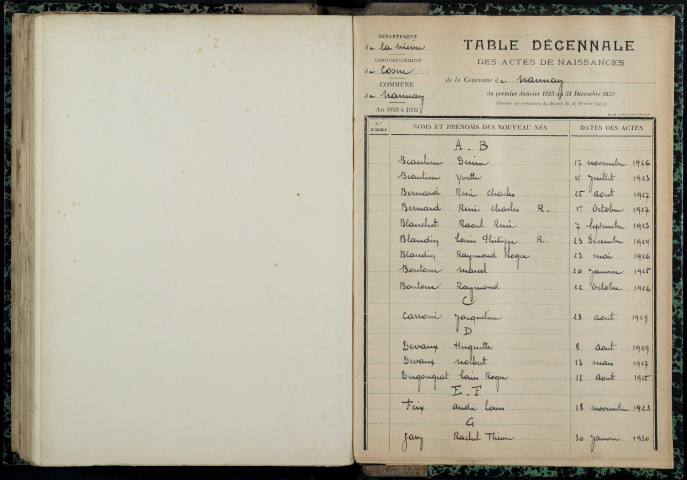 DÉPARTEMENT
de la nièvre
ARRONDISSEMENT
de Cosne
COMMUNE
de nannay
AN 1923 à 1932
TABLE DÉCENNALE
DES ACTES DE NAISSANCES
de la Commune de nannay
du premier Janvier 1923 au 31 Décembre 1932
N°
D'ORDRE
NOMS ET PRÉNOMS DES NOUVEAU-NÉS
DATES DES ACTES
A - B
Beaulieu Denise 17 novembre 1926
Beaulieu Yvette 4 Juillet 1923
Bernard René Charles 25 aout 1927
Bernard René Charles R. 1er Octobre 1927
Blanchet Raoul René 7 Septembre 1923
Blandin Louis Philippe R. 23 Décembre 1924
Blandin Raymond Roger 23 mai 1926
Boutour marcel 20 Janvier 1925
Boutour Raymond 22 Octobre 1926
C
Jacqueline 23 aout 1929
D
Devaux Huguette 8 aout 1929
Devaux norbert 13 mars 1927
Louis Roger 11 aout 1925
E - F
Feix andré Louis 18 novembre 1923
G
Jany Rachel 30 Janvier 1930